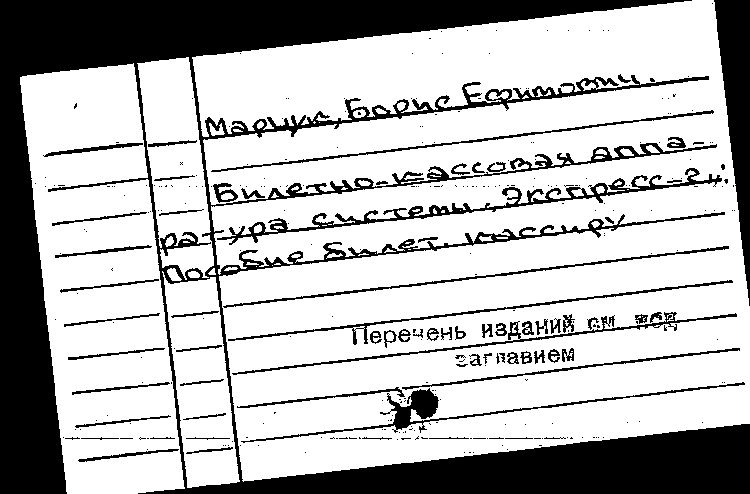 Марчук, Борис Ефимович.
Билетно-кассовая аппа-
ратура системы „Экспресс-2":
Пособие билет. кассиру
Перечень изданий см под
заглавием